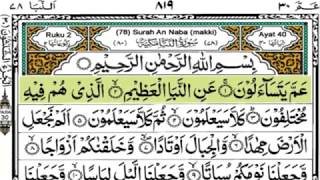 النبا ٧٨ ٨١٩ عم ٣٠
Ruku 2 (78) Surah An Naba (makki) Ayat 40
بِسْمِ اللّٰهِ الرَّحْمٰنِ الرَّحِيْمِ
عَمَّ يَتَسَآءَلُوْنَ عَنِ النَّبَاِ الْعَظِيْمِ الَّذِيْ هُمْ فِيْهِ
مُخْتَلِفُوْنَ كَلَّا سَيَعْلَمُوْنَ ثُمَّ كَلَّا سَيَعْلَمُوْنَ اَلَمْ نَجْعَلِ
الْاَرْضَ مِهٰدًا وَّالْجِبَالَ اَوْتَادًا وَّخَلَقْنٰكُمْ اَزْوَاجًا وَّ
جَعَلْنَا نَوْمَكُمْ سُبَاتًا وَّجَعَلْنَا الَّيْلَ لِبَاسًا وَّجَعَلْنَا